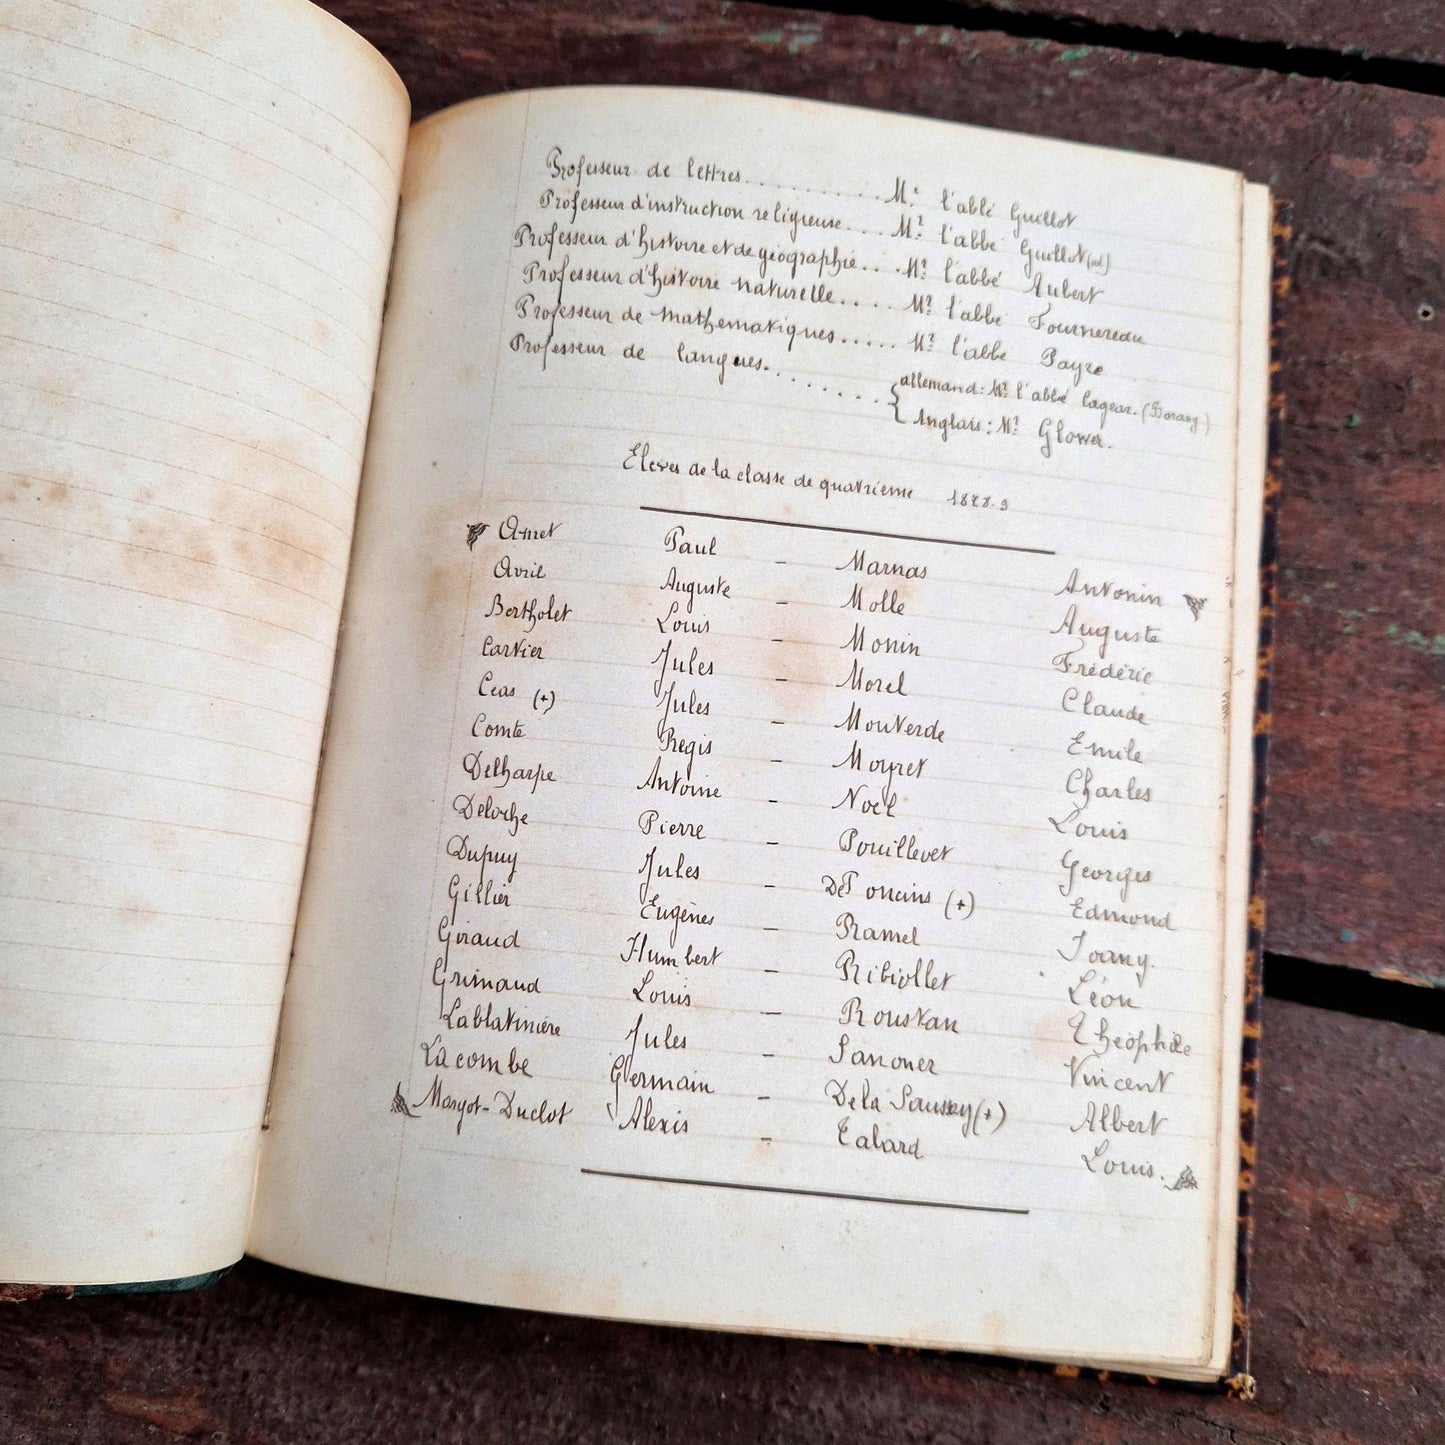 Professeur de lettres.......... Mr. l'abbé Guillot
Professeur d'instruction religieuse... Mr. l'abbé Guillot
Professeur d'histoire et de géographie... Mr. l'abbé Aubert
Professeur d'histoire naturelle..... Mr. l'abbé Fournereau
Professeur de mathématiques..... Mr. l'abbé Payre
Professeur de langues.......... allemand: Mr. l'abbé Lagear. (Dorang)
Anglais: Mr. Glower.
Elèves de la classe de quatrième 1888.9
Amet Paul - Marnas Antonin
Avril Auguste - Molle Auguste
Bertholet Louis - Monin Frédéric
Cartier Jules - Morel Claude
Ceas (+) Jules - Mouterde Emile
Comte Régis - Moyret Charles
Delharpe Antoine - Noël Louis
Deloche Pierre - Pouillevet Georges
Dupuy Jules - De Poncins (+) Edmond
Gillier Eugènes - Ramel Joany.
Giraud Humbert - Ribiollet Léon
Grimaud Louis - Roustan Théophile
Lablatinière Jules - Sanoner Vincent
Lacombe Germain - De la Saussay (+) Albert
Margot-Duclot Alexis - Tabard Louis.